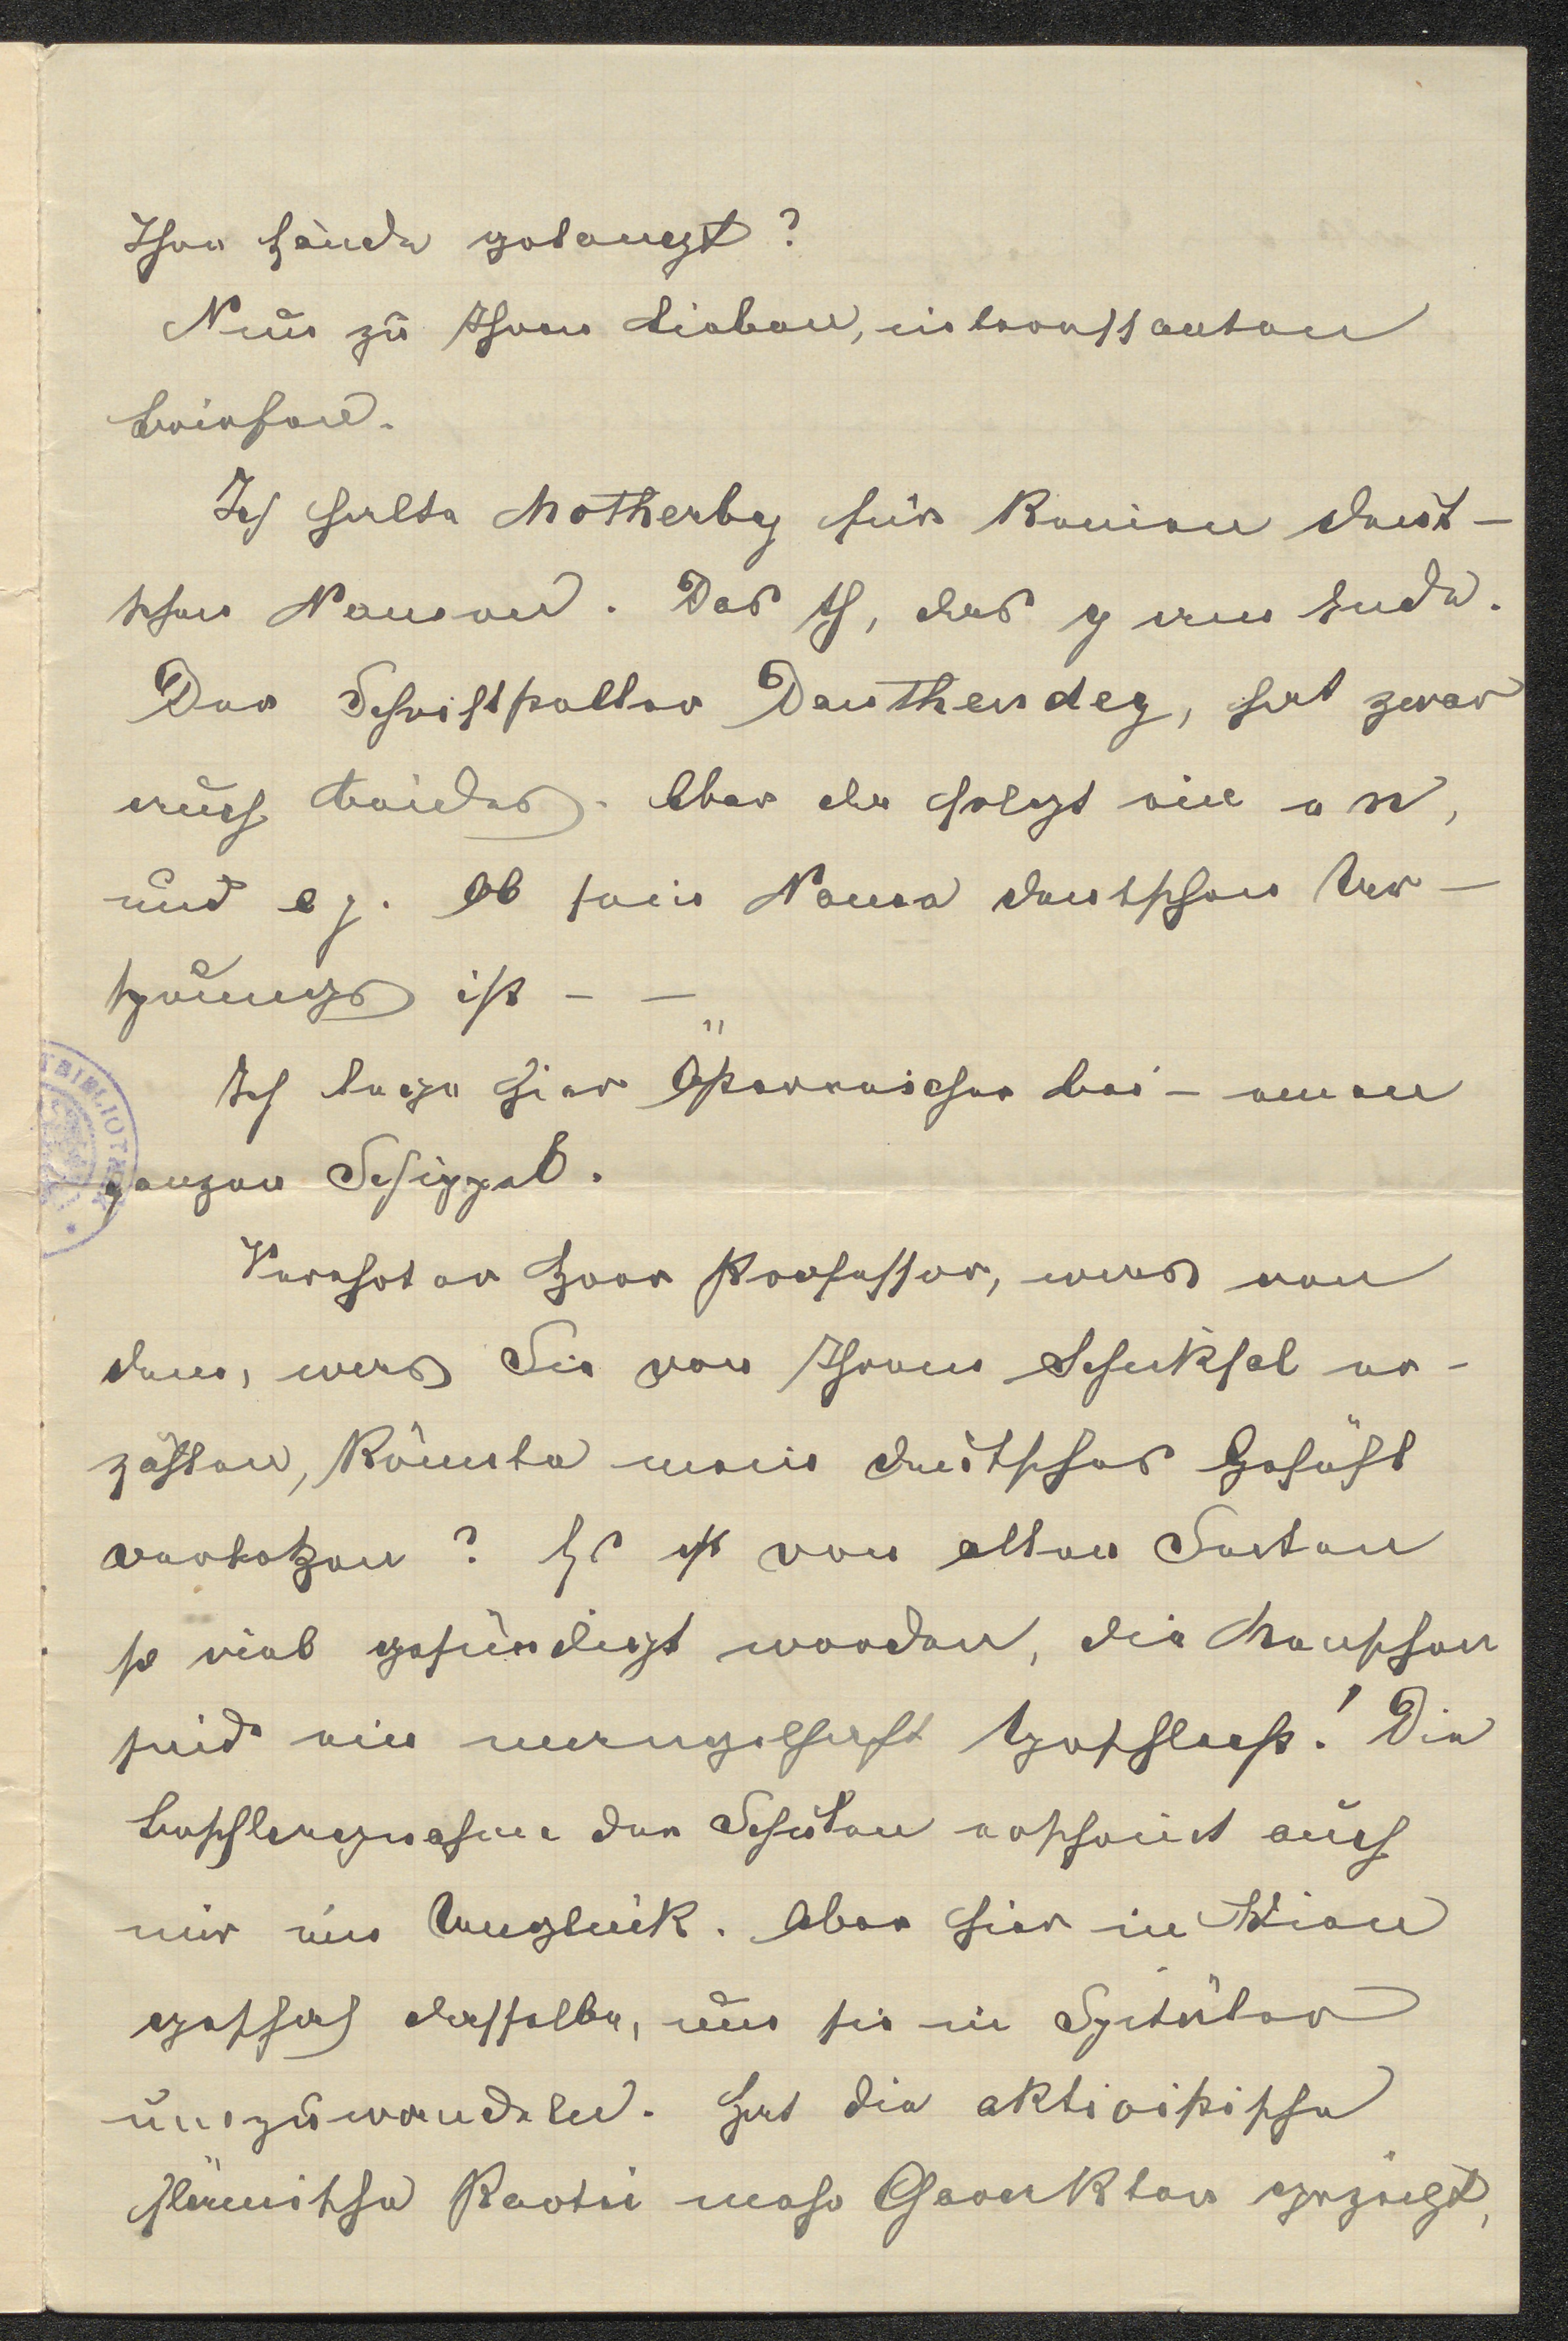 Ihre Hände gelangt?
Nun zu Ihren lieben, interessanten
Briefen.
Ich halte Motherby für keinen deut-
schen Namen. Das th, das y am Ende.
Der Schriftsteller Dauthendey, hat zwar
auch beides. Aber da folgt ein e n,
und e y. Ob sein Name deutschen Ur-
sprungs ist - -
Ich lege hier Österreicher bei - einen
ganzen Schippel.
Verehrter Herr Professor, was von
dem, was Sie von Ihrem Schicksal er-
zählen, könnte mein deutsches Gefühl
verletzen? Es ist von allen Seiten
so viel gesündigt worden, die Menschen
sind ein mangelhaft Geschlecht! Die
Beschlagnahme der Schulen erscheint auch
mir ein Unglück. Aber hier in Wien
geschah dasselbe, um sie in Spitäler
umzuwandeln. Hat die aktivistische
flämische Partei mehr Charakter gezeigt,
BIBLIOTHEK